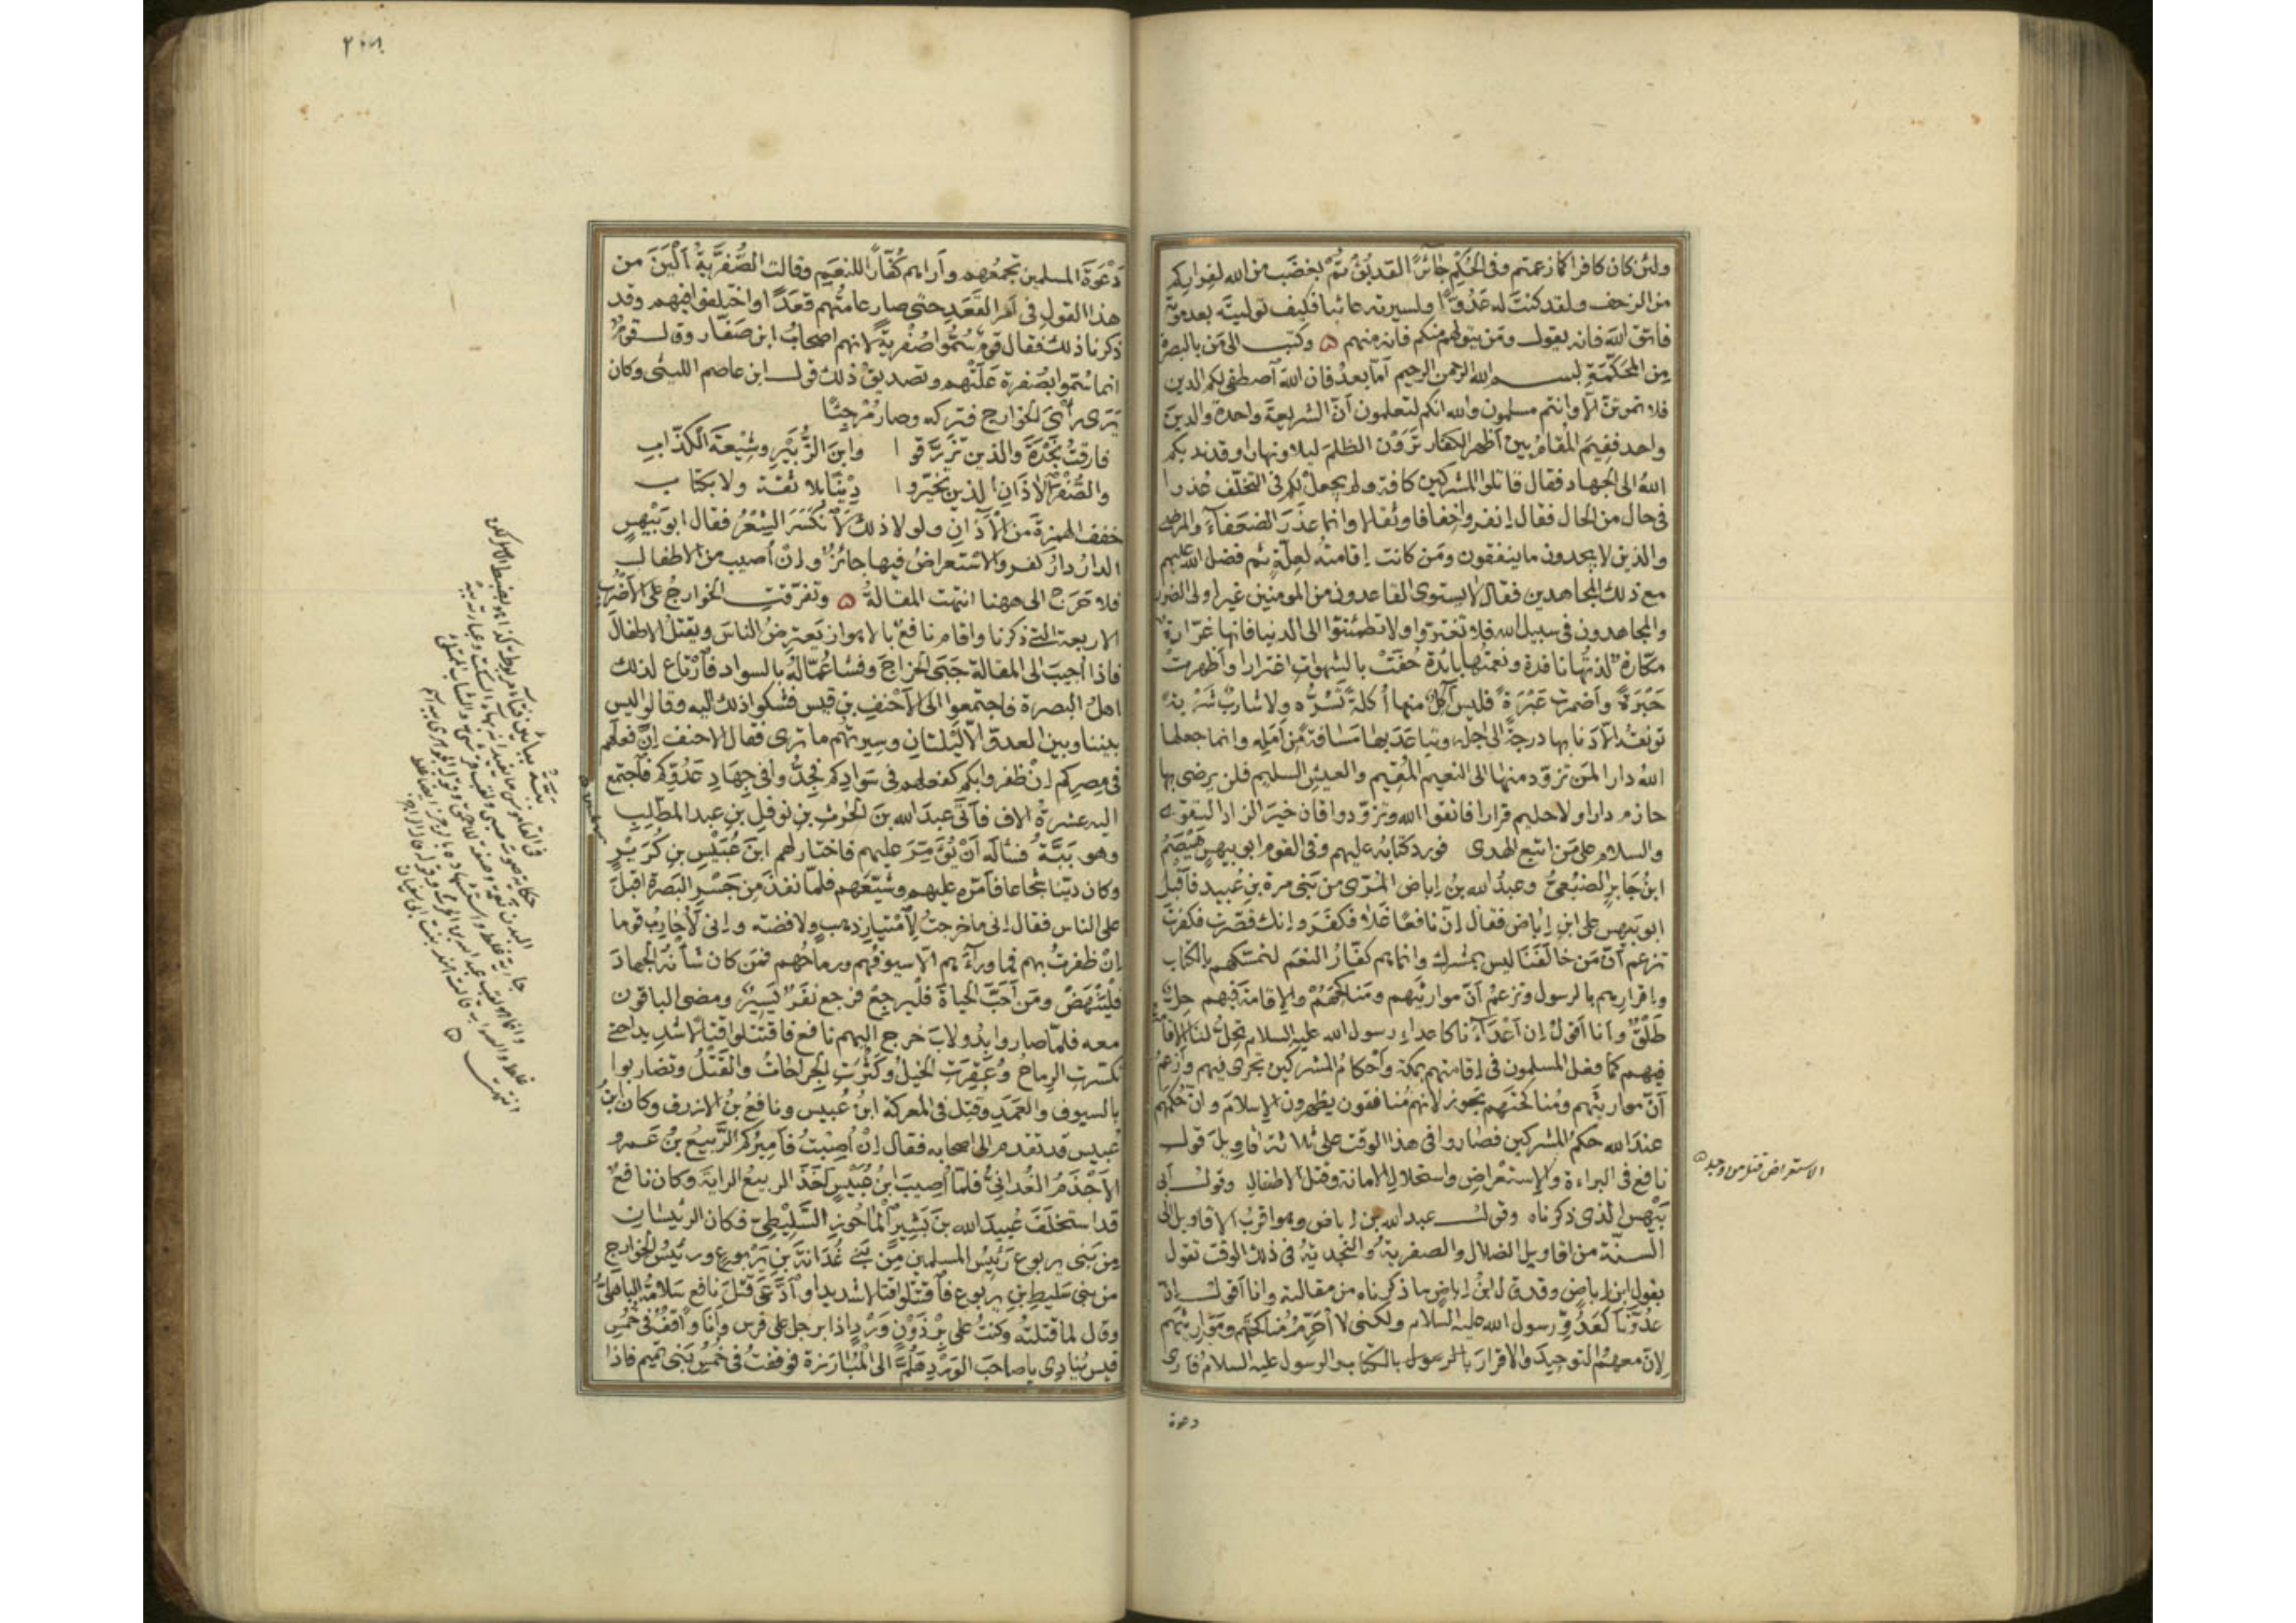 ولئن كان كافرا كما زعمتم وفي الحكم جائرا لقد بؤتم بغضب من الله لفراركم
من الزحف ولقد كنت له عدوا ولسيرته عائبا فكيف توليته بعد موته
فاتق الله فانه يقول ومن يتولهم منكم فانه منهم ۵ وكتب الى من بالبصرة
من المحكمة بسم الله الرحمن الرحيم أما بعد فان الله اصطفى لكم الدين
فلا تموتن الا وانتم مسلمون والله انكم لتعلمون أن الشريعة واحدة والدين
واحد ففيم المقام بين أظهر الكفار ترون الظلم ليلا ونهارا وقد ندبكم
الله الى الجهاد فقال قاتلوا المشركين كافة ولم يجعل لكم في التخلف عذرا
في حال من الحال فقال انفروا خفافا وثقالا وانما عذر الضعفاء والمرضى
والذين لا يجدون ما ينفقون ومن كانت إقامته لعلة ثم فضل الله عليهم
مع ذلك المجاهدين فقال لا يستوى القاعدون من المومنين غير اولى الضرر
والمجاهدون في سبيل الله فلا تغتروا ولا تطمئنوا الى الدنيا فانها غرارة
مكارة لذتها نافدة ونعمتها بائدة حفت بالشهوات اغترارا وأظهرت
حبرة وأضمرت عبرة فليس آكل منها أكلة تسره ولا شارب شربة
تونقه الا دنا بها درجة الى اجله وتباعد بها مسافة من أمله وانما جعلها
الله دارا لمن تزود منها الى النعيم المقيم والعيش السليم فلن يرضى بها
حازم دارا ولا حليم قرارا فاتقوا الله وتزودوا فان خير الزاد التقوى
والسلام على من اتبع الهدى فورد كتابه عليهم وفي القوم ابو بيهس هيصم
ابن جابر الضبعي وعبد الله بن إباض المري من بني مرة بن عبيد فأقبل
ابو بيهس على ابن إباض فقال إن نافعا غلا فكفر وإنك قصرت فكفرت
تزعم أن من خالفنا ليس بمشرك وانما هم كفار النعم لتمسكهم بالكتاب
وإقرارهم بالرسول وتزعم أن مواريثهم ومناكحهم والإقامة فيهم حل
طلق وأنا أقول إن أعداءنا كاعداء رسول الله عليه السلام تحل لنا الإقامة
فيهم كما فعل المسلمون في إقامتهم بمكة وأحكام المشركين تجرى فيهم وأزعم
أن مواريثهم ومناكحتهم تجوز لانهم منافقون يظهرون الإسلام وان حكمهم
عند الله حكم المشركين فصاروا في هذا الوقت على ثلاثة أقاويل قول
نافع في البراءة والإستعراض واستحلال الامانة وقتل الاطفال وقول أبى
بيهس الذى ذكرناه وقول عبد الله بن إباض وهو اقرب الاقاويل الى
السنة من اقاويل الضلال والصفرية والنجدية في ذلك الوقت تقول
بقول ابن إباض وقد قال ابن إباض ما ذكرناه من مقالته وانا أقول إن
عدونا كعدو رسول الله عليه السلام ولكنى لا أحرم مناكحهم ومواريثهم
لان معهم التوحيد والاقرار بالرسول بالكتاب والرسول عليه السلام فارى
دعوة
الاستعراض قتل من وجد ۵
دعوة المسلمين تجمعهم وأراهم كفارا للنعم وقالت الصفرية ألين من
هذا القول في امر القعد حتى صار عامتهم قعدا واختلفوا فيهم وقد
ذكرنا ذلك فقال قوم سموا صفرية لانهم اصحاب ابن صفار وقال قوم
انما سموا بصفرة علتهم وتصديق ذلك قول ابن عاصم الليثى وكان
يرى رأي الخوارج فتركه وصار مرجئا
فارقت نجدة والذين تزرقوا وابن الزبير وشيعة الكذاب
والصفر الاذان الذين تخيروا دينا بلا ثقة ولا بكتاب
خفف الهمزة من الآذان ولولا ذلك لانكسر الشعر فقال ابو بيهس
الدار دار كفر والاستعراض فيها جائز وإن أصيب من الاطفال
فلا حرج الى ههنا انتهت المقالة ۵ وتفرقت الخوارج على الأضرب
الاربعة التى ذكرنا واقام نافع بالاهواز يعترض الناس ويقتل الاطفال
فاذا أجيب الى المقالة جبى الخراج وفشا عماله بالسواد فارتاع لذلك
اهل البصرة فاجتمعوا الى الاحنف بن قيس فشكوا ذلك اليه وقالوا ليس
بيننا وبين العدو الا ليلتان وسيرتهم ما ترى فقال الاحنف إن فعلهم
في مصركم إن ظفروا بكم كفعلهم في سوادكم فجدوا في جهاد عدوكم فاجتمع
اليه عشرة الاف فأتى عبد الله بن الحرث بن نوفل بن عبد المطلب
وهو ببة فسأله أن يؤمر عليهم فاختار لهم ابن عبيس بن كريز
وكان دينا شجاعا فأمره عليهم وشيعهم فلما نفذ من جسر البصرة اقبل
على الناس فقال إنى ما خرجت لامتيار ذهب ولا فضة وإنى لأحارب قوما
إن ظفرت بهم فما وراءهم الا سيوفهم ورماحهم فمن كان شأنه الجهاد
فلينهض ومن أحب الحياة فليرجع فرجع نفر يسير ومضى الباقون
معه فلما صاروا بدولاب خرج اليهم نافع فاقتتلوا قتالا شديدا حتى
تكسرت الرماح وعقرت الخيل وكثرت الجراحات والقتل وتضاربوا
بالسيوف والعمد وقتل في المعركة ابن عبيس ونافع بن الازرق وكان ابن
عبيس قد تقدم الى اصحابه فقال إن أصبت فأميركم الربيع بن عمرو
الأجذم الغداني فلما أصيب ابن عبيس أخذ الربيع الراية وكان نافع
قد استخلف عبيد الله بن بشير الماحوز السليطى فكان الرئيسان
من بنى يربوع رئيس المسلمين من بنى غدانة بن يربوع ورئيس الخوارج
من بنى سليط بن يربوع فاقتتلوا قتالا شديدا وادعى قتل نافع سلامة الباهلى
وقال لما قتلته وكنت على برذون ورد اذا برجل على فرس وأنا واقف في خمس
قيس ينادى يا صاحب الورد هلم الى المبارزة فوقفت في خمس بنى تميم فاذا